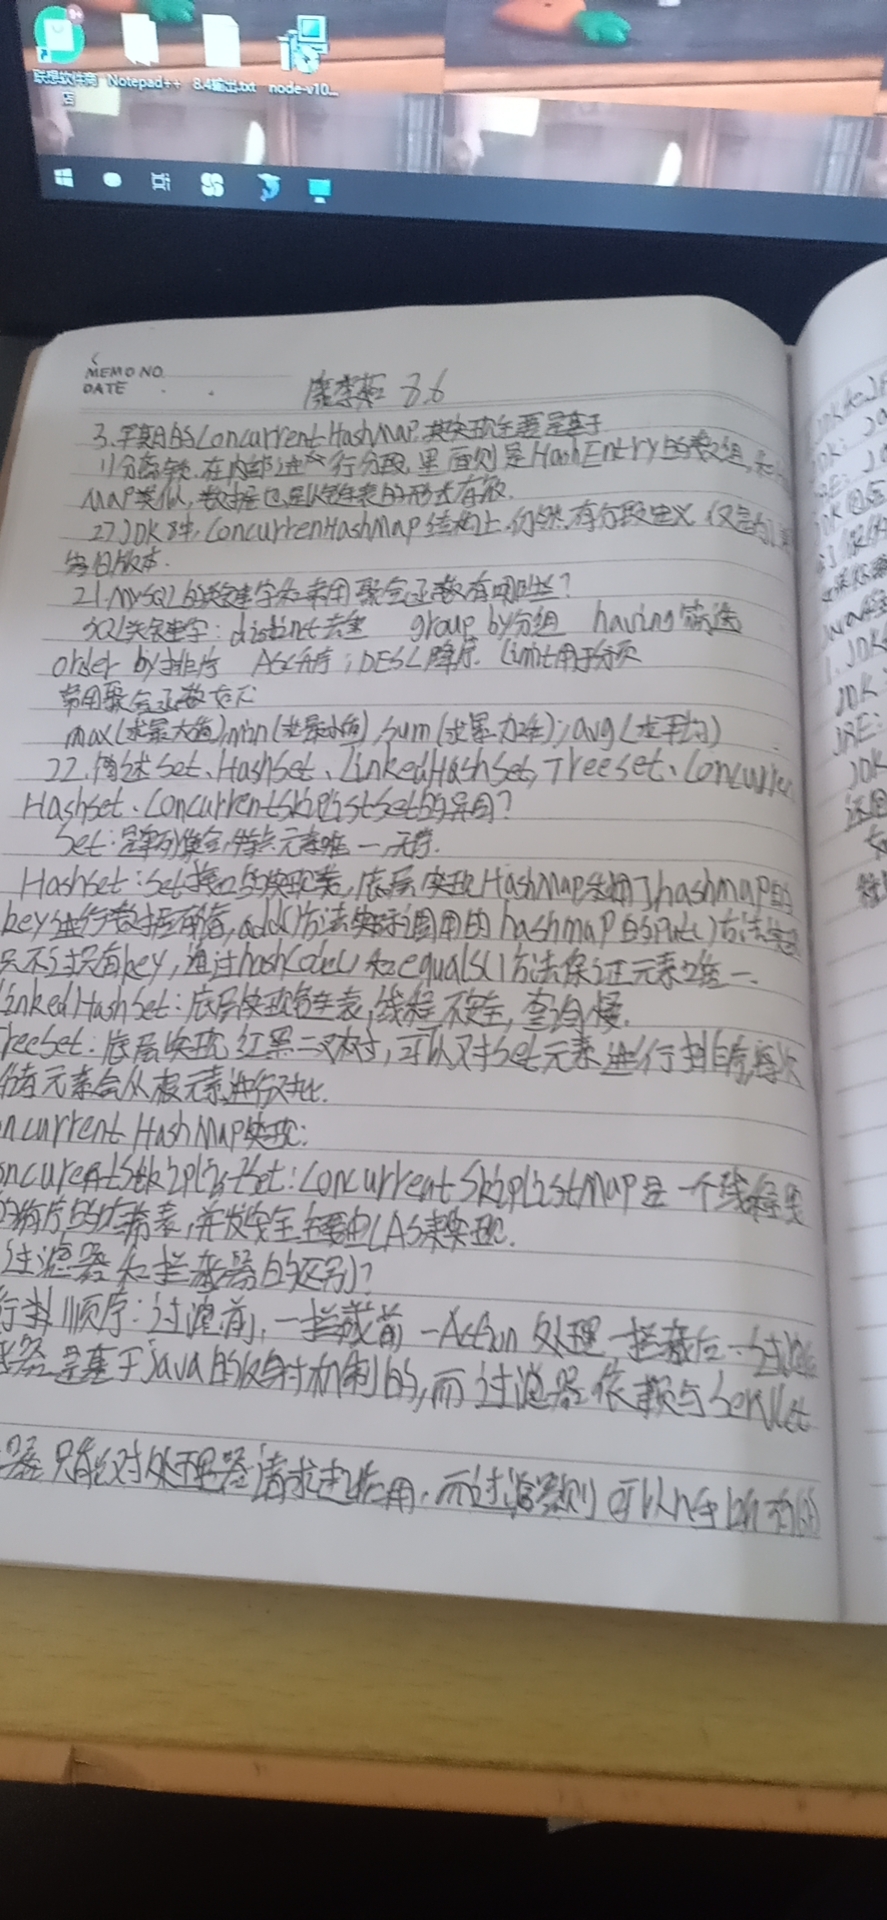 联想软件商店
Notepad++
8.4输出.txt
node-v10...
MEMO NO.
DATE
8.6
3.早期的ConcurrentHashMap,其实现主要是基于
1)分离锁,在内部进行分段,里面则是HashEntry的数组,
MAP类似,数据也是以链表的形式存放.
2)JDK8中,ConcurrenHashMap结构上仍然有分段定义,仅是为
旧版本.
21.MySQL的关键字和常用聚合函数有哪些?
SQL关键字:distint去重 group by分组 having筛选
order by排序 ASC升序;DESC降序.limit用于分页
常用聚合函数有以下
max(求最大值),min(求最小值),sum(求累加和);avg(求平均)
22.简述Set、HashSet、LinkedHashSet,Treeset、Concurre
Hashset、ConcurrentSkiplistSet的异同?
Set:是单列集合,特点元素唯一,无序.
Hashset:Set接口的实现类,底层实现HashMap 了hashmap的
key进行数据存储,add()方法实际调用的hashmap的put()方法
只不过只有key,通过hashCode()和equals()方法保证元素唯一.
LinkedHashSet:底层实现链表,线程不安全,查询慢.
reeSet:底层实现红黑二叉树,可以对Set元素进行排序,每次
储元素会从根元素进行对比.
ncurrentHashMap实现:
oncurentSkiplistSet:ConcurrentSkiplistMap是一个线程安
的有序的 表,并发安全主要由CAS来实现.
过滤器和拦截器的区别?
行顺序:过滤前,一拦截前一Action处理一拦截后一过滤
器是基于java的反射机制的,而过滤器依赖与Servlet
器只能对处理器请求起作用,而过滤器则可以对